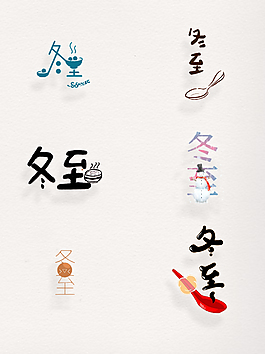 冬至
冬至
冬至
冬至
冬至
冬至